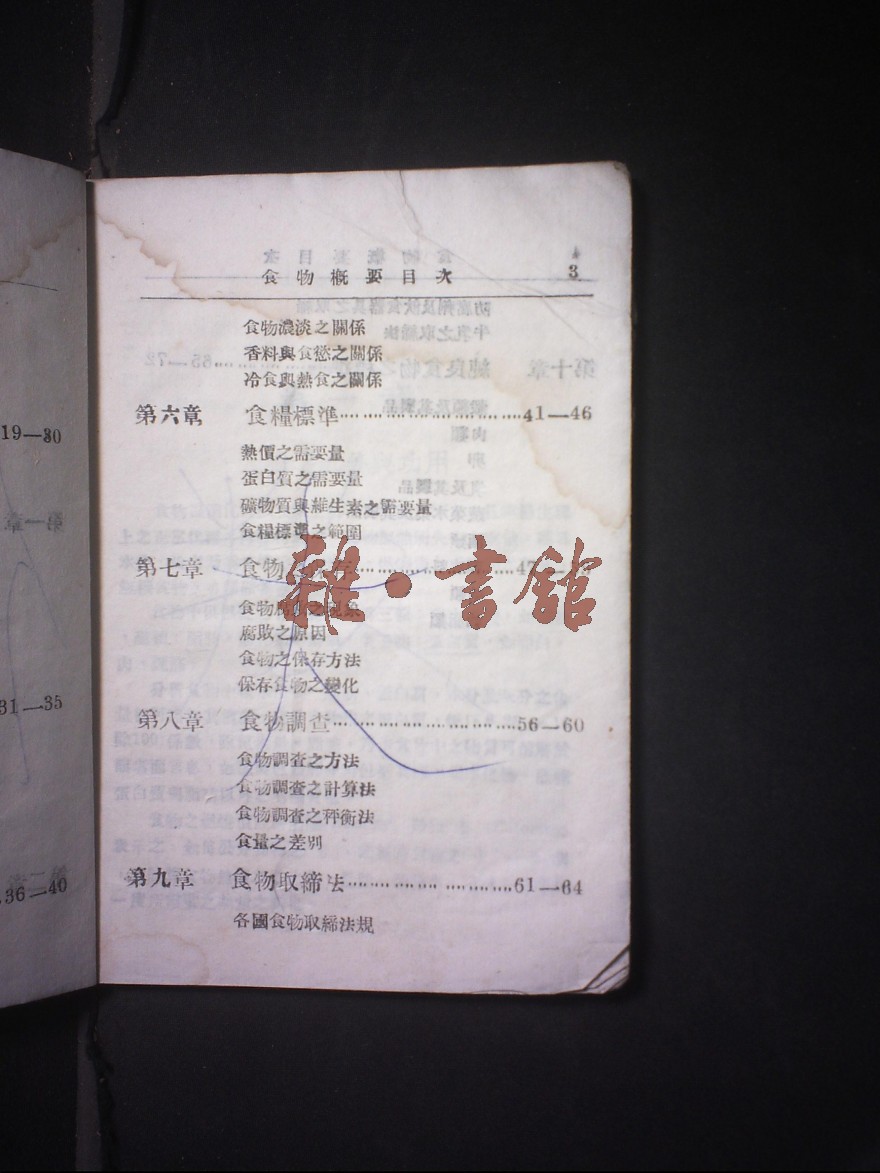 食物概要目次 3
食物濃淡之關係
香料與食慾之關係
冷食與熱食之關係
第六章 食糧標準……………………41—46
熱價之需要量
蛋白質之需要量
礦物質與維生素之需要量
食糧標準之範圍
第七章 食物
雜·書館
食物腐敗之現象
腐敗之原因
食物之保存方法
保存食物之變化
第八章 食物調查……………………56—60
食物調查之方法
食物調查之計算法
食物調查之秤衡法
食量之差別
第九章 食物取締法……………………61—64
各國食物取締法規
19—30
31—35
36—40